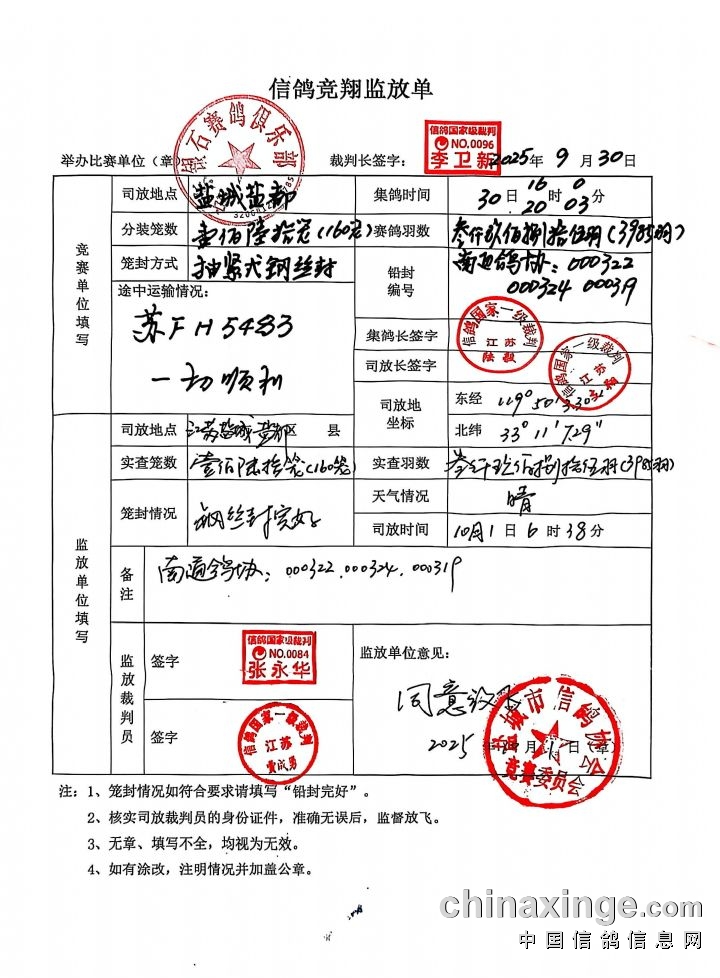 信鸽竞翔监放单
石赛鸽俱乐部
举办比赛单位（章）
裁判长签字：
信鸽国家级裁判
NO.0096
李卫新
2025年 9 月 30 日
竞赛单位填写
司放地点 盐城盐都
集鸽时间 30 日 16 时 0 分
20 03
分装笼数 壹佰陆拾笼(160笼)
赛鸽羽数 叁仟玖佰捌拾伍羽(3985羽)
笼封方式 抽紧式钢丝封
铅封编号 南通鸽协：000322
000324 000319
途中运输情况：
苏FH5483
一切顺利
集鸽长签字
信鸽国家一级裁判
江苏
司放长签字
信鸽国家一级裁判
江苏
司放地坐标
东经 119°50'
北纬 33°11'7.29"
监放单位填写
司放地点 江苏盐城盐都区 县
实查笼数 壹佰陆拾笼(160笼)
实查羽数 叁仟玖佰捌拾伍羽(3985羽)
笼封情况 钢丝封完好
天气情况 晴
司放时间 10月1日6时38分
备注 南通鸽协：000322.000324.000319
监放裁判员
签字
信鸽国家级裁判
NO.0084
张永华
签字
信鸽国家一级裁判
江苏
监放单位意见：
同意放飞
2025年 月1日（章）
盐城市信鸽协会
竞赛委员会
注：1、笼封情况如符合要求请填写“铅封完好”。
2、核实司放裁判员的身份证件，准确无误后，监督放飞。
3、无章、填写不全，均视为无效。
4、如有涂改，注明情况并加盖公章。
chinaxinge.com
中国信鸽信息网